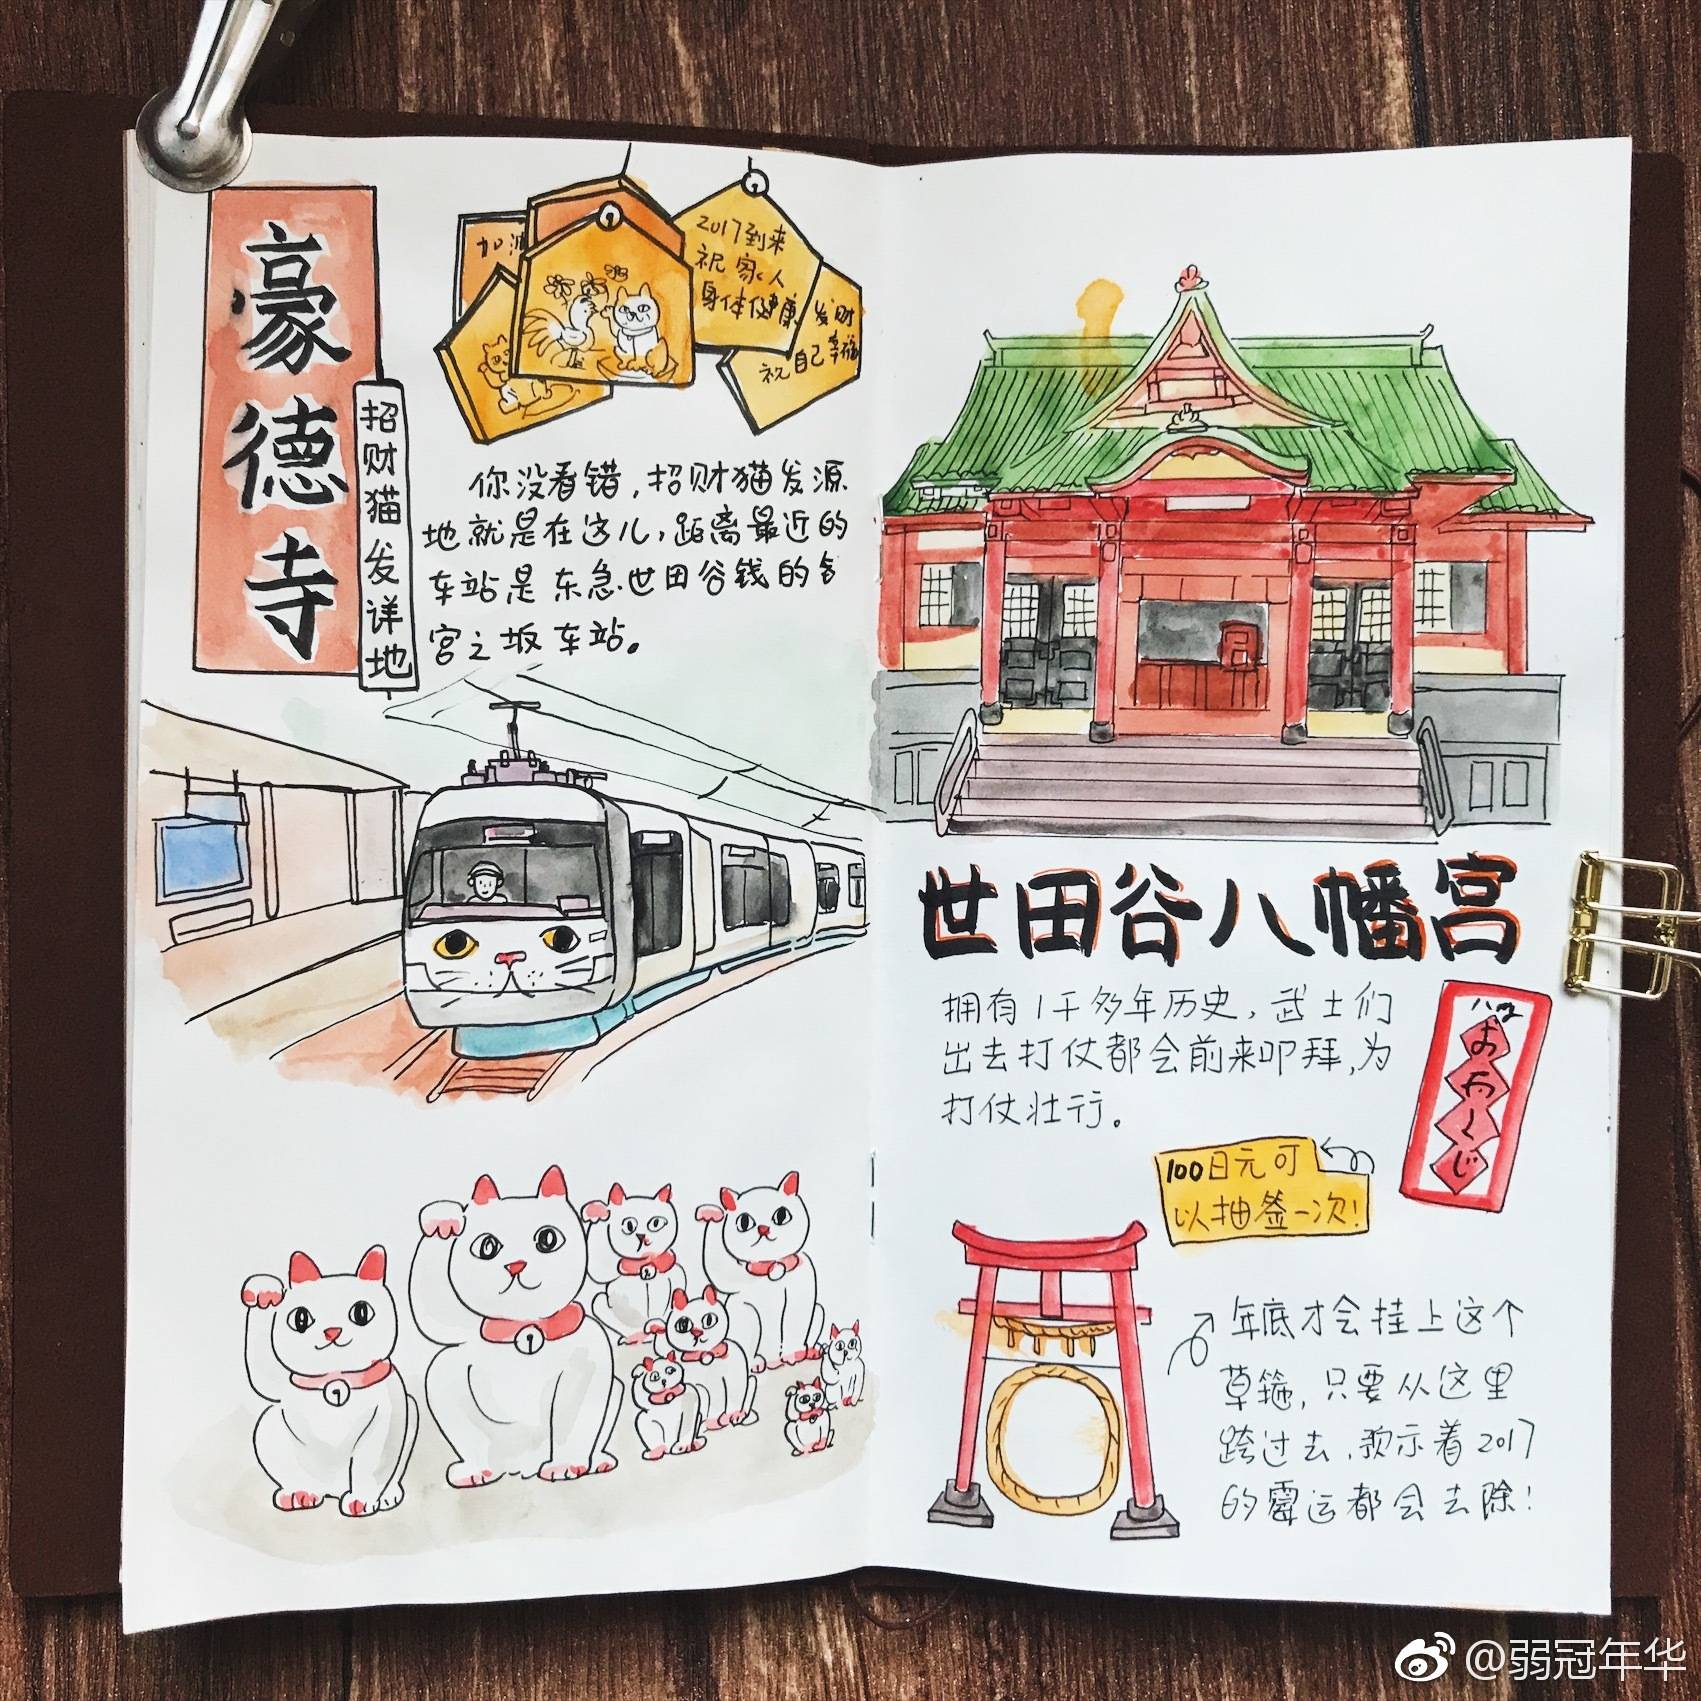 豪德寺
招财猫发详地
加油
2017到来
祝家人
身体健康
发财
祝自己幸福
你没看错,招财猫发源
地就是在这儿,距离最近的
车站是东急世田谷钱的宫
宫之坂车站。
世田谷八幡宫
拥有1千多年历史,武士们
出去打仗都会前来叩拜,为
打仗壮行。
おみくじ
100日元可
以抽签一次!
年底才会挂上这个
草箍,只要从这里
跨过去,预示着2017
的霉运都会去除!
@弱冠年华